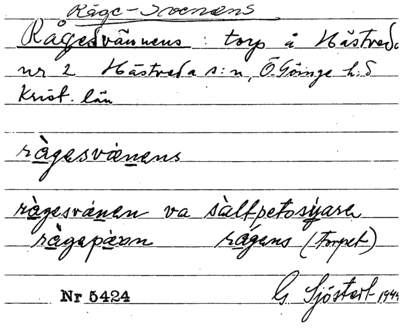 Råge-Svenens
Rågesvännens : torp å Hästveda
nr 2 Hästveda s:n, Ö. Göinge h:d
Krist. län
rågesvænens
rågesvånen va sàltpetosjyare
rågapæron rågens (torpet)
Nr 5424 G Sjöstedt 1944